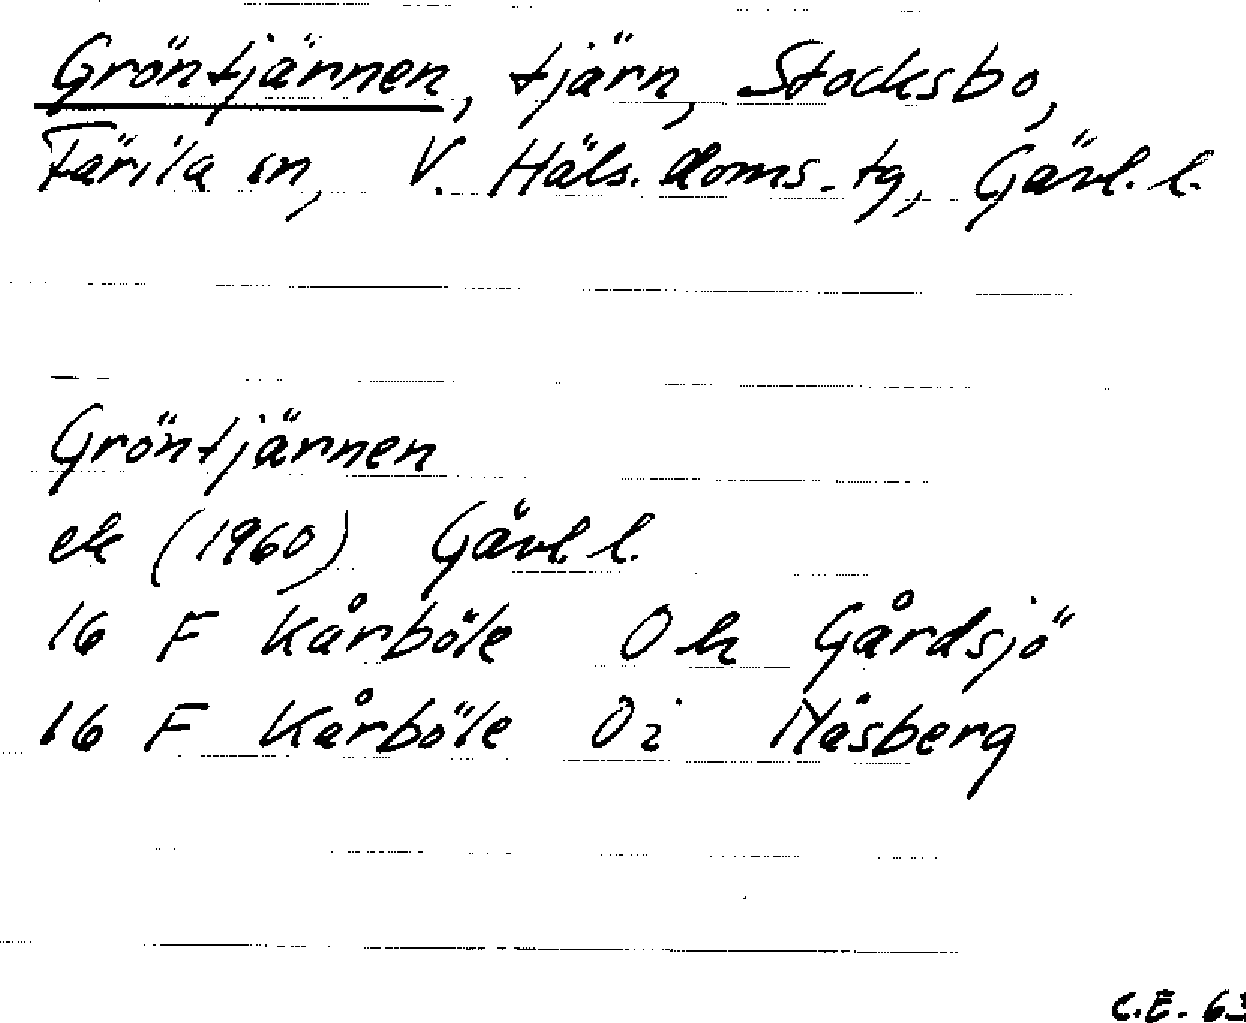 Gröntjärnen, tjärn, Stocksbo,
Färila sn, V. Häls. doms. tg, Gävl. l.
Gröntjärnen
ek (1960) Gävl. l.
16 F Kårböle 0 h Gårdsjö
16 F Kårböle 0 i Nåsberg
C.E. 63